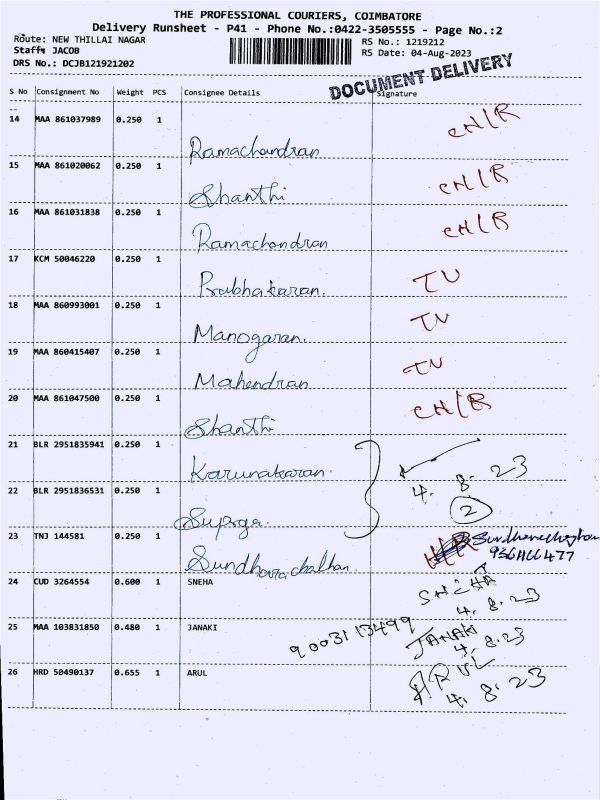 THE PROFESSIONAL COURIERS, COIMBATORE
Delivery Runsheet - P41 - Phone No.:0422-3505555 - Page No.:2
Route: NEW THILLAI NAGAR
RS No.: 1219212
Staff: JACOB
RS Date: 04-Aug-2023
DRS No.: DCJB121921202
DOCUMENT DELIVERY
S No Consignment No Weight PCS Consignee Details Signature
14 MAA 861037989 0.250 1 Ramachandran CN/R
15 MAA 861020062 0.250 1 Shanthi CN/R
16 MAA 861031838 0.250 1 Ramachandran CN/R
17 KCM 50046220 0.250 1 Prabhakaran.
18 MAA 860993001 0.250 1 Manogaran.
19 MAA 860415407 0.250 1 Mahendran
20 MAA 861047500 0.250 1 Shanthi CN/R
21 BLR 2951835941 0.250 1 Karunakaran. 4. 8. 23
22 BLR 2951836531 0.250 1 2
23 TNJ 144581 0.250 1
24 CUD 3264554 0.600 1 SNEHA SNEHA 4. 8. 23
25 MAA 103831850 0.480 1 JANAKI 9003113499 JANAKI 4. 8. 23
26 HRD 50490137 0.655 1 ARUL ARUL 4. 8. 23